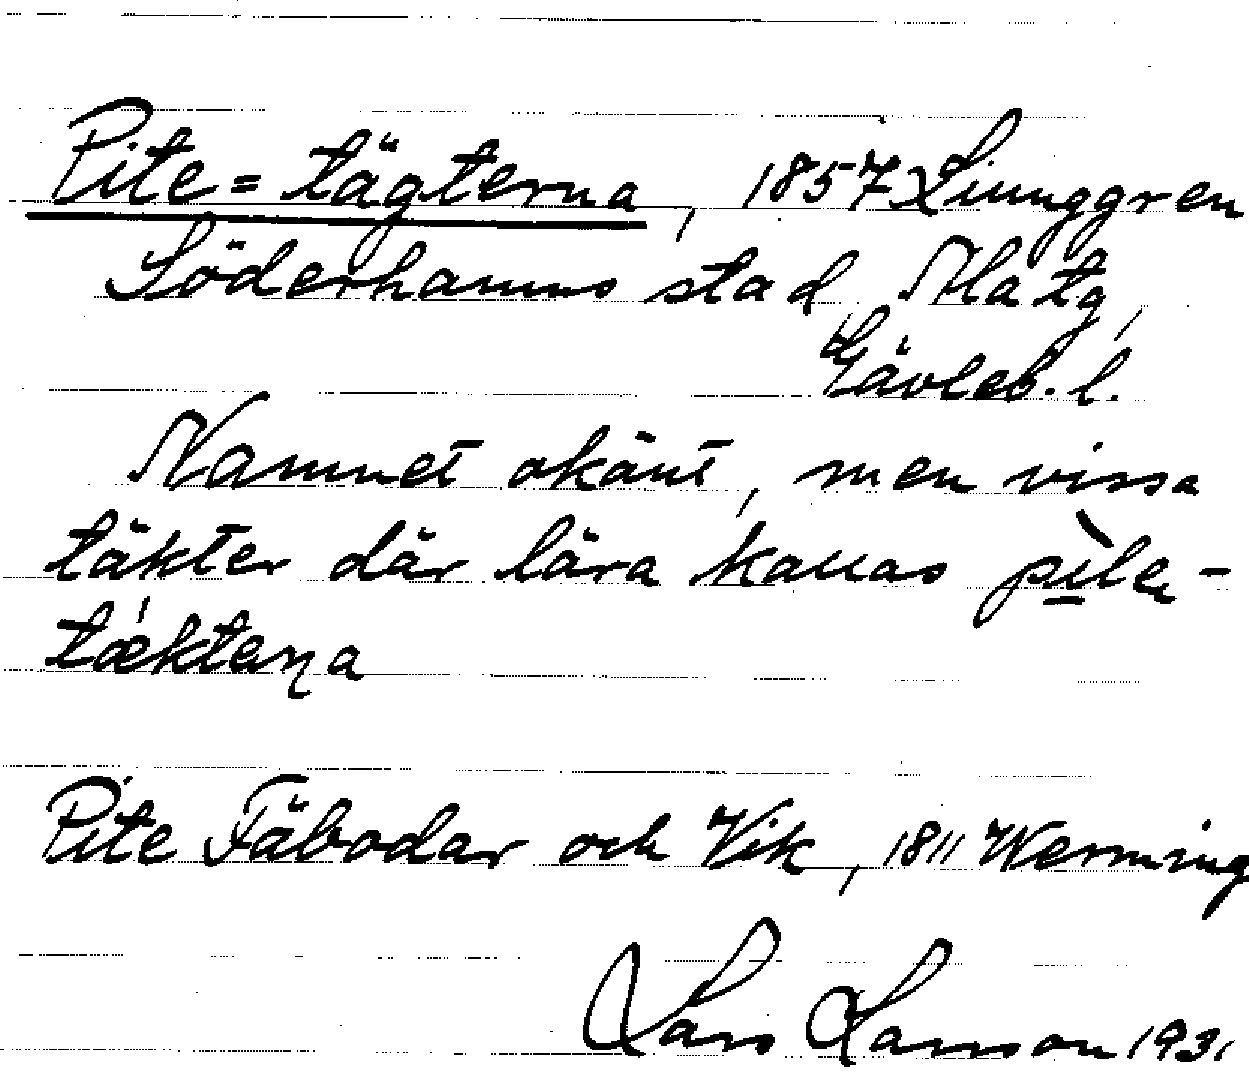 Pite=tägterna, 1857 Ljunggren
Söderhamns stad, Ala tg,
Gävleb. l.
Namnet okänt, men vissa
täkter där lära kallas pìle-
tǽkteṇa
Pite Fäbodar och Vik, 1811 Werming
Lars Larsson 1931